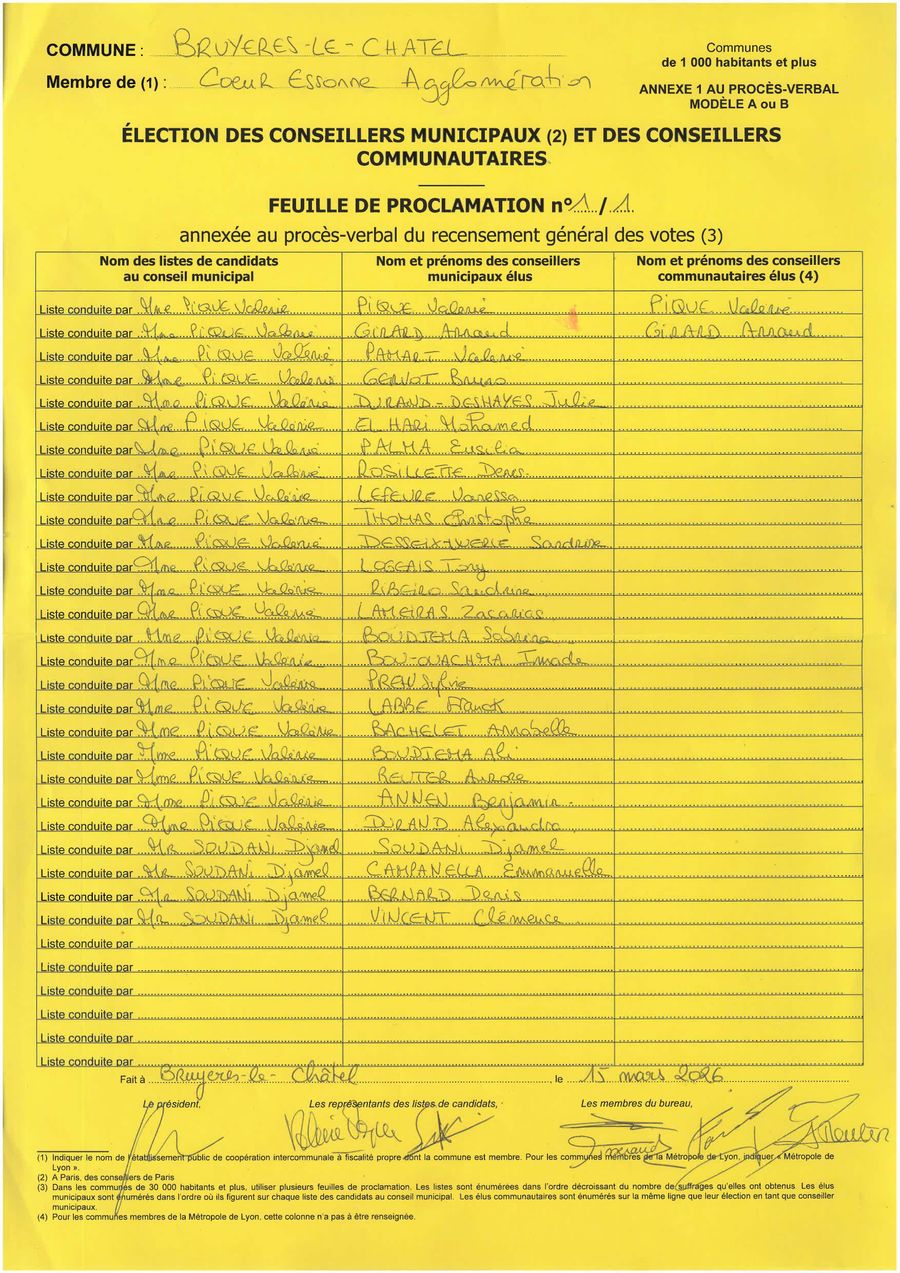 COMMUNE : BRUYERES-LE-CHATEL
Membre de (1) : Coeur Essonne Agglomération
Communes
de 1 000 habitants et plus
ANNEXE 1 AU PROCÈS-VERBAL
MODÈLE A ou B
ÉLECTION DES CONSEILLERS MUNICIPAUX (2) ET DES CONSEILLERS
COMMUNAUTAIRES
FEUILLE DE PROCLAMATION n° 1 / 1
annexée au procès-verbal du recensement général des votes (3)
Nom des listes de candidats au conseil municipal Nom et prénoms des conseillers municipaux élus Nom et prénoms des conseillers communautaires élus (4)
Liste conduite par Mme PIQUE Valérie PIQUE Valérie PIQUE Valérie
Liste conduite par Mme PIQUE Valérie GIRARD Arnaud GIRARD Arnaud
Liste conduite par Mme PIQUE Valérie PAMART Valérie
Liste conduite par Mme PIQUE Valérie GERVOT Bruno
Liste conduite par Mme PIQUE Valérie DURAND-DESHAYES Julie
Liste conduite par Mme PIQUE Valérie EL HARI Mohamed
Liste conduite par Mme PIQUE Valérie PALMA Eusilia
Liste conduite par Mme PIQUE Valérie ROSILLETTE Denis
Liste conduite par Mme PIQUE Valérie LEFEVRE Vanessa
Liste conduite par Mme PIQUE Valérie THOMAS Christophe
Liste conduite par Mme PIQUE Valérie Sandrine
Liste conduite par Mme PIQUE Valérie LOGEAIS Tony
Liste conduite par Mme PIQUE Valérie RIBEIRO Sandrine
Liste conduite par Mme PIQUE Valérie LAMEIRAS Zacarias
Liste conduite par Mme PIQUE Valérie BOUDJEMA Sabrina
Liste conduite par Mme PIQUE Valérie BOU-OUACHMA Imade
Liste conduite par Mme PIQUE Valérie Sylvie
Liste conduite par Mme PIQUE Valérie LABBE Franck
Liste conduite par Mme PIQUE Valérie BACHELET Annabelle
Liste conduite par Mme PIQUE Valérie BOUDJEMA Ali
Liste conduite par Mme PIQUE Valérie REUTER Aurore
Liste conduite par Mme PIQUE Valérie ANNEN Benjamin
Liste conduite par Mme PIQUE Valérie DURAND Alexandra
Liste conduite par MR SOUDANI Djamel SOUDANI Djamel
Liste conduite par MR SOUDANI Djamel CAMPANELLA Emmanuelle
Liste conduite par MR SOUDANI Djamel BERNARD Denis
Liste conduite par MR SOUDANI Djamel VINCENT Clémence
Liste conduite par
Liste conduite par
Liste conduite par
Liste conduite par
Liste conduite par
Liste conduite par
Fait à Bruyeres-le-Châtel , le 15 mars 2026
Le président, Les représentants des listes de candidats, Les membres du bureau,
(1) Indiquer le nom de l'établissement public de coopération intercommunale à fiscalité propre dont la commune est membre. Pour les communes membres de la Métropole de Lyon, indiquer « Métropole de
Lyon ».
(2) A Paris, des conseillers de Paris
(3) Dans les communes de 30 000 habitants et plus, utiliser plusieurs feuilles de proclamation. Les listes sont énumérées dans l'ordre décroissant du nombre de suffrages qu'elles ont obtenus. Les élus
municipaux sont énumérés dans l'ordre où ils figurent sur chaque liste des candidats au conseil municipal. Les élus communautaires sont énumérés sur la même ligne que leur élection en tant que conseiller
municipaux.
(4) Pour les communes membres de la Métropole de Lyon, cette colonne n'a pas à être renseignée.